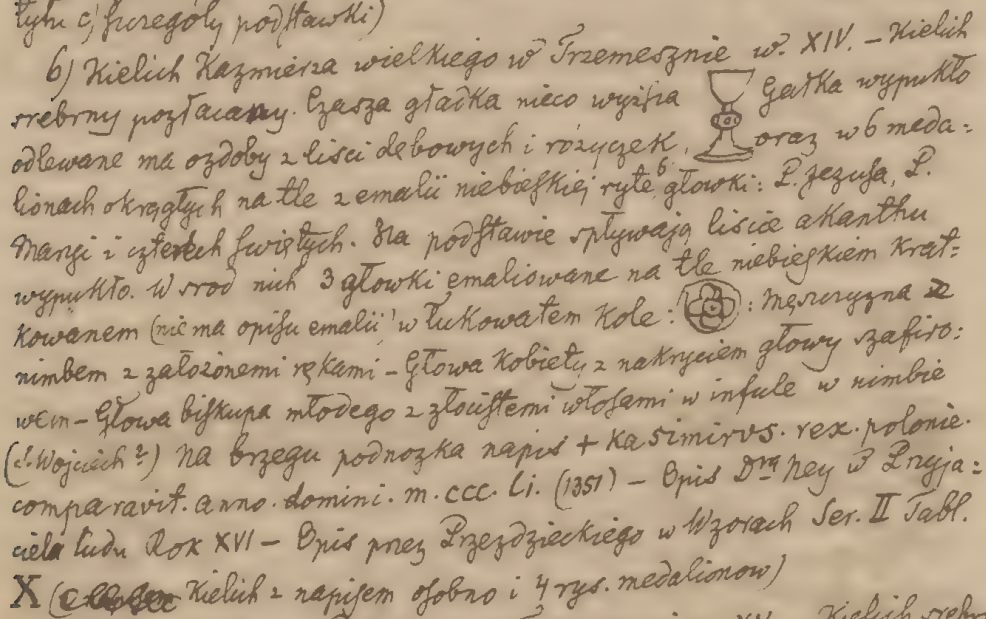 tyłu c) szczegóły podstawki)
6) Kielich Kazmierza wielkiego w Trzemesznie w. XIV. – Kielich
srebrny pozłacany. Czasza gładka nieco wyższa Gałka wypukło
odlewane ma ozdoby z liści dębowych i różyczek, oraz w 6 meda:
lionach okrągłych na tle z emalii niebieskiej ryte 6 głowki: P. Jezusa, P.
Maryi i czterech swiętych. Na podstawie spływają liscie akanthu
wypukło. W srod nich 3 głowki emaliowane na tle niebieskiem krat:
kowanem (nie ma opisu emalii) w łukowatem kole: : Męsczyzna z
nimbem z założonemi rękami – Głowa kobiety z nakryciem głowy szafiro:
wem – Głowa biskupa młodego z złocistemi włosami w infule w nimbie
(S. Wojciech?) Na brzegu podnozka napis + kasimirvs. rex. polonie.
comparavit. anno. domini. m. ccc. Li. (1351) – Opis Dra Ney w Przyja:
ciela ludu Rok XVI – Opis przez Przezdzieckiego w Wzorach Ser. II Tabl.
X ( Kielich z napisem osobno i 4 rys. medalionow)
XV. Kielich srebr